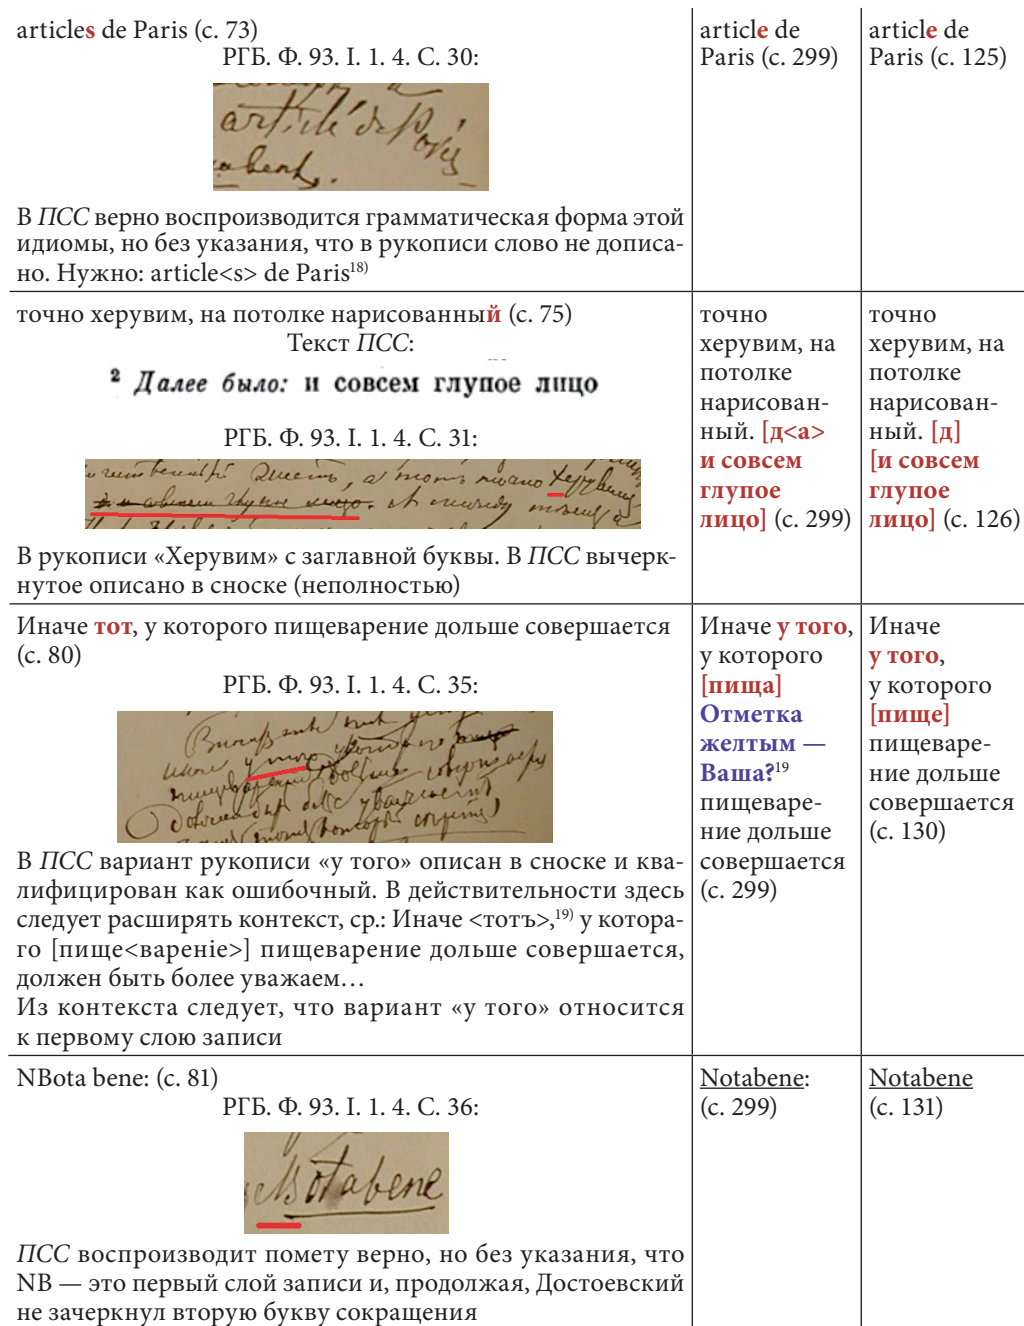 articles de Paris (с. 73)
РГБ. Ф. 93. I. 1. 4. С. 30:
article de Paris
В ПСС верно воспроизводится грамматическая форма этой
идиомы, но без указания, что в рукописи слово не дописа-
но. Нужно: article<s> de Paris18)
article de
Paris (с. 299)
article de
Paris (с. 125)
точно херувим, на потолке нарисованный (с. 75)
Текст ПСС:
2 Далее было: и совсем глупое лицо
РГБ. Ф. 93. I. 1. 4. С. 31:
и совсем глупое лицо.
В рукописи «Херувим» с заглавной буквы. В ПСС вычерк-
нутое описано в сноске (неполностью)
точно
херувим, на
потолке
нарисован-
ный. [д<а>
и совсем
глупое
лицо] (с. 299)
точно
херувим, на
потолке
нарисован-
ный. [д]
[и совсем
глупое
лицо] (с. 126)
Иначе тот, у которого пищеварение дольше совершается
(с. 80)
РГБ. Ф. 93. I. 1. 4. С. 35:
В ПСС вариант рукописи «у того» описан в сноске и ква-
лифицирован как ошибочный. В действительности здесь
следует расширять контекст, ср.: Иначе <тотъ>,19) у котора-
го [пище<вареніе>] пищеварение дольше совершается,
должен быть более уважаем…
Из контекста следует, что вариант «у того» относится
к первому слою записи
Иначе у того,
у которого
[пища]
Отметка
желтым —
Ваша?19
пищеваре-
ние дольше
совершается
(с. 299)
Иначе
у того,
у которого
[пище]
пищеваре-
ние дольше
совершается
(с. 130)
NBota bene: (с. 81)
РГБ. Ф. 93. I. 1. 4. С. 36:
NBotabene
ПСС воспроизводит помету верно, но без указания, что
NB — это первый слой записи и, продолжая, Достоевский
не зачеркнул вторую букву сокращения
Notabene:
(с. 299)
Notabene
(с. 131)